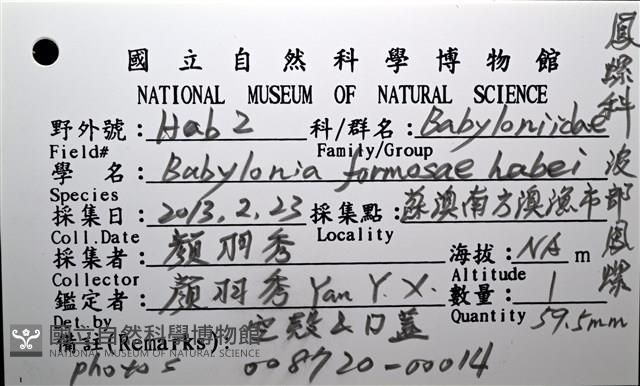 國立自然科學博物館
NATIONAL MUSEUM OF NATURAL SCIENCE
野外號: Hab2 科/群名: Babyloniidae
Field# Family/Group
學 名: Babylonia formosae habei
Species
採集日: 2013.2.23 採集點: 蘇澳南方澳漁市
Coll.Date Locality
採集者: 顏羽秀 海拔: NA m
Collector Altitude
鑑定者: 顏羽秀 Yan Y. X. 數量: 1
Det.by Quantity 59.5mm
備註(Remarks): 空殼&口蓋
photos 008720-00014
鳳螺科 波部鳳螺
國立自然科學博物館
NATIONAL MUSEUM OF NATURAL SCIENCE
1